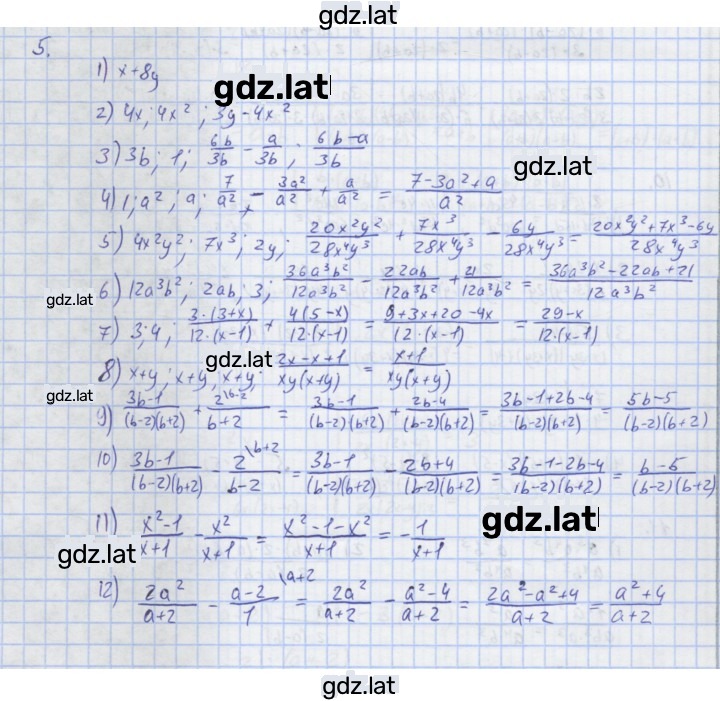 gdz.lat
5.
1) x+8y
gdz.lat
2) 4x; 4x²; 3y-4x²
3) 3b; 1; 6b/3b - a/3b; (6b-a)/3b
gdz.lat
4) 1; a²; a; 7/a² - 3a²/a² + a/a² = (7-3a²+a)/a²
5) 4x²y²; 7x³; 2y; 20x²y²/28x⁴y³ + 7x³/28x⁴y³ - 6y/28x⁴y³ = (20x²y²+7x³-6y)/28x⁴y³
6) 12a³b²; 2ab; 3; 36a³b²/12a³b² - 22ab/12a³b² + 21/12a³b² = (36a³b²-22ab+21)/12a³b²
gdz.lat
7) 3; 4; 3·(3+x)/12·(x-1) + 4(5-x)/12·(x-1) = (9+3x+20-4x)/(12·(x-1)) = (29-x)/12·(x-1)
gdz.lat
8) x+y; x+y, x+y; (2x-x+1)/xy(x+y) = (x+1)/xy(x+y)
gdz.lat
9) (3b-1)/(b-2)(b+2) + 2\b-2/(b+2) = (3b-1)/(b-2)(b+2) + (2b-4)/(b-2)(b+2) = (3b-1+2b-4)/(b-2)(b+2) = (5b-5)/(b-2)(b+2)
10) (3b-1)/(b-2)(b+2) - 2\b+2/(b-2) = (3b-1)/(b-2)(b+2) - (2b+4)/(b-2)(b+2) = (3b-1-2b-4)/(b-2)(b+2) = (b-5)/(b-2)(b+2)
11) (x²-1)/(x+1) - x²/(x+1) = (x²-1-x²)/(x+1) = -1/(x+1)
gdz.lat
gdz.lat
12) 2a²/(a+2) - (a-2)\a+2/1 = 2a²/(a+2) - (a²-4)/(a+2) = (2a²-a²+4)/(a+2) = (a²+4)/(a+2)
gdz.lat